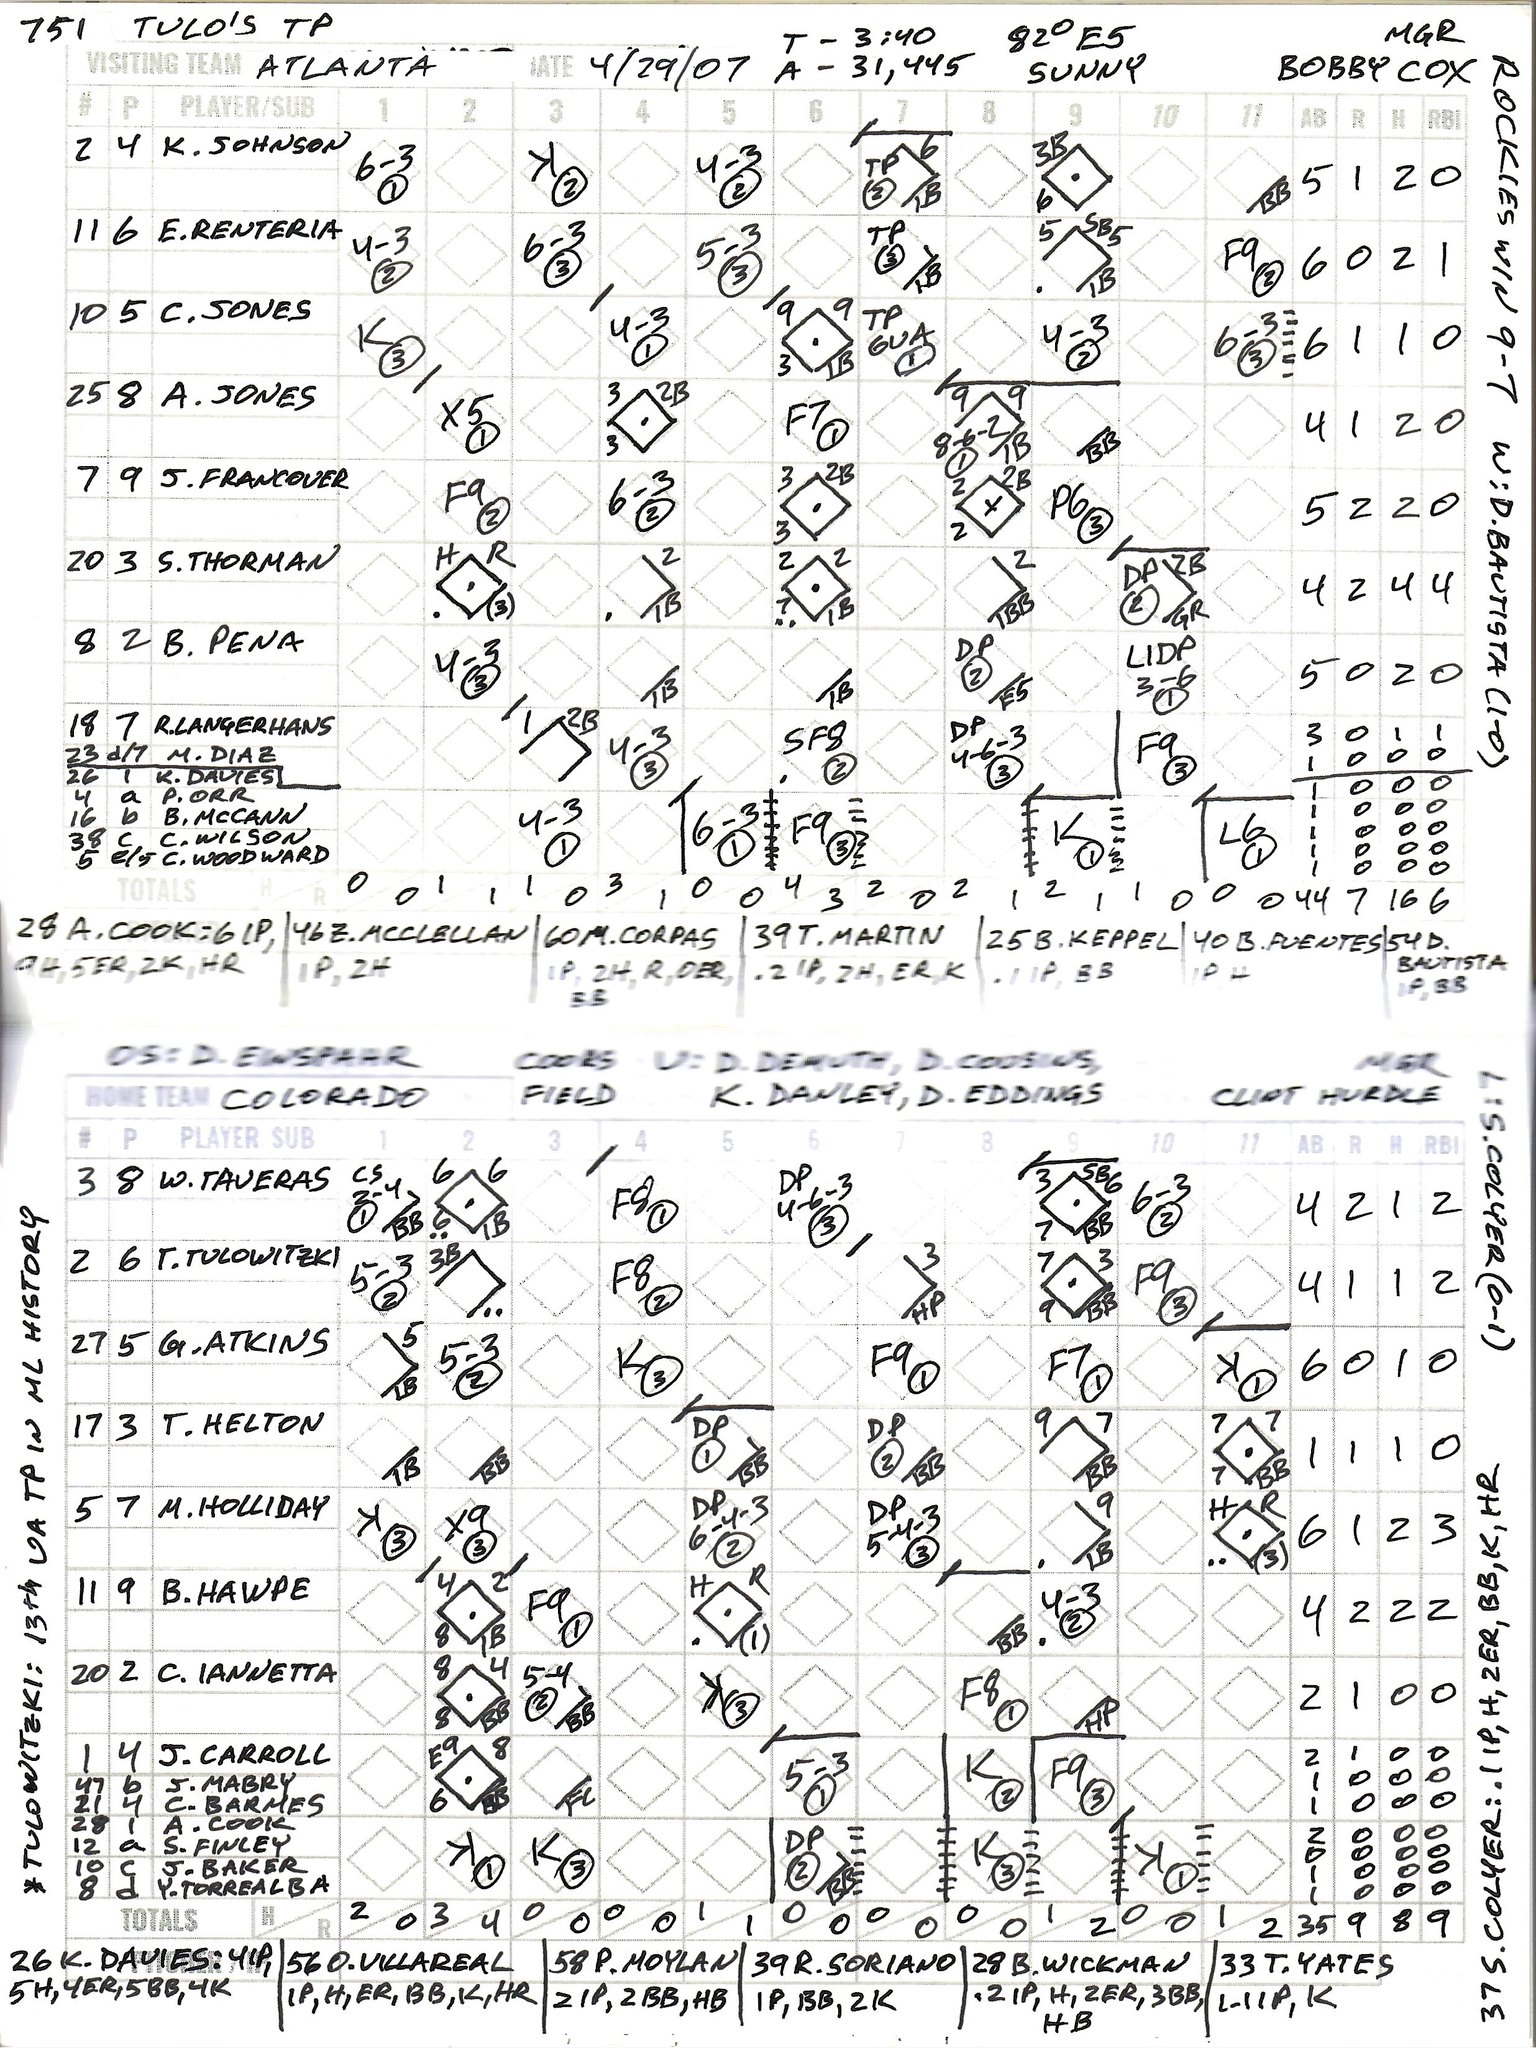 751 TULO'S TP
T - 3:40 82° E5 MGR
VISITING TEAM ATLANTA DATE 4/29/07 A - 31,445 SUNNY BOBBY COX
# P PLAYER/SUB 1 2 3 4 5 6 7 8 9 10 11 AB R H RBI
2 4 K. JOHNSON 6-3 1 K 2 4-3 2 TP 2 6 1B 3B 6 BB 5 1 2 0
11 6 E. RENTERIA 4-3 2 6-3 3 5-3 3 TP 3 1B 5 SB5 1B F9 2 6 0 2 1
10 5 C. JONES K 3 4-3 1 9 9 3 1B TP 6UA 1 4-3 2 6-3 3 6 1 1 0
25 8 A. JONES X5 1 3 2B 3 F7 1 9 9 8-6-2 1 1B BB 4 1 2 0
7 9 J. FRANCOUER F9 2 6-3 2 3 2B 3 2 2B 2 P6 3 5 2 2 0
20 3 S. THORMAN H R (3) 2 1B 2 2 7 1B 2 IBB DP 2 2B GR 4 2 4 4
8 2 B. PENA 4-3 3 1B 1B DP 2 E5 LIDP 3-6 1 5 0 2 0
18 7 R. LANGERHANS 1 2B 4-3 3 SF8 2 DP 4-6-3 3 F9 3 3 0 1 1
23 d/7 M. DIAZ 1 0 0 0
26 1 K. DAVIES 4-3 1 6-3 1 F9 3 K 1 L6 1 1 0 0 0
4 a P. ORR 1 0 0 0
16 b B. MCCANN 1 0 0 0
38 c C. WILSON 1 0 0 0
5 e/5 C. WOODWARD 1 0 0 0
TOTALS H R 0 0 1 1 1 0 3 1 0 0 4 3 2 0 2 1 2 1 1 0 0 0 44 7 16 6
28 A. COOK: 6 IP, 46 Z. MCCLELLAN 60 M. CORPAS 39 T. MARTIN 25 B. KEPPEL 40 B. FUENTES 54 D. BAUTISTA
9H, 5ER, 2K, HR 1P, 2H 1P, 2H, R, 0ER, BB .2 IP, 2H, ER, K .1 IP, BB 1P H 1P, BB
ROCKIES WIN 9-7 W: D. BAUTISTA (1-0)
OS: D. EINSPAHR COORS U: D. DEMUTH, D. COUSINS, MGR
HOME TEAM COLORADO FIELD K. DANLEY, D. EDDINGS CLINT HURDLE
# P PLAYER SUB 1 2 3 4 5 6 7 8 9 10 11 AB R H RBI
3 8 W. TAVERAS CS 2-4 1 BB 6 6 6 1B F8 1 DP 4-6-3 3 3 SB6 7 BB 6-3 2 4 2 1 2
2 6 T. TULOWITZKI 5-3 2 3B F8 2 3 HP 7 3 9 BB F9 3 4 1 1 2
27 5 G. ATKINS 5 1B 5-3 2 K 3 F9 1 F7 1 K 1 6 0 1 0
17 3 T. HELTON 1B BB DP 1 BB DP 2 BB 9 7 BB 7 7 7 BB 1 1 1 0
5 7 M. HOLLIDAY K 3 X9 3 DP 6-4-3 2 DP 5-4-3 3 9 1B H R (3) 6 1 2 3
11 9 B. HAWPE 4 2 8 1B F9 1 H R (1) BB 4-3 2 4 2 2 2
20 2 C. IANNETTA 8 4 8 BB 5-4 2 BB K 3 F8 1 HP 2 1 0 0
1 4 J. CARROLL E9 8 6 BB FC 5-3 1 K 2 F9 3 2 1 0 0
47 b J. MABRY 1 0 0 0
21 4 C. BARMES 1 0 0 0
28 1 A. COOK K 1 K 3 DP 2 BB K 3 K 1 2 0 0 0
12 a S. FINLEY 0 0 0 0
10 c J. BAKER 1 0 0 0
8 d Y. TORREALBA 1 0 0 0
TOTALS H R 2 0 3 4 0 0 0 0 1 1 0 0 0 0 0 0 1 2 0 0 1 2 35 9 8 9
26 K. DAVIES: 4 IP, 56 O. VILLAREAL 58 P. MOYLAN 39 R. SORIANO 28 B. WICKMAN 33 T. YATES
5H, 4ER, 5BB, 4K 1P, H, ER, BB, K, HR 2 IP, 2BB, HB 1P, BB, 2K .2 IP, H, 2ER, 3BB, HB 1.1 IP, K
* TULOWITZKI: 13TH UA TP IN ML HISTORY
L: S. COLYER (0-1)
37 S. COLYER: .1 IP, H, 2ER, BB, K, HR